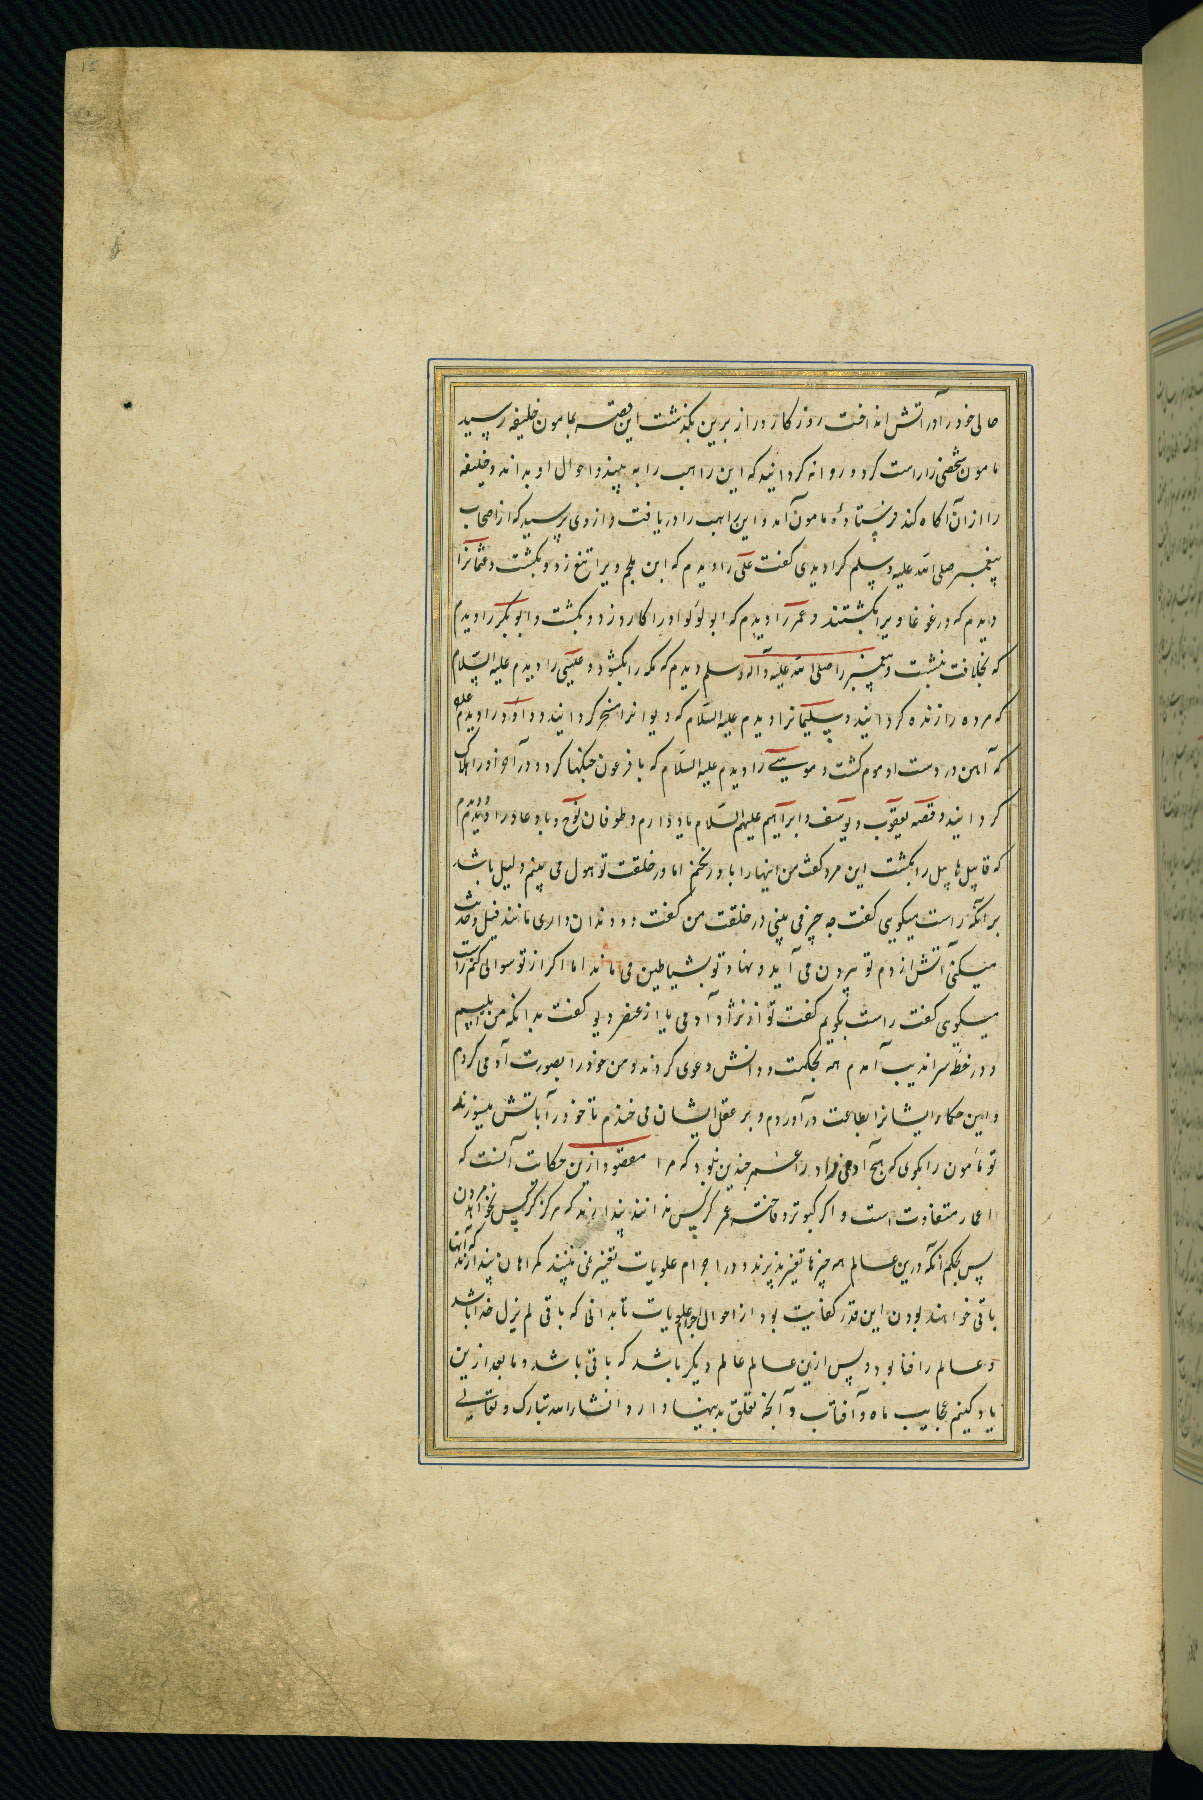 حالی خود را در آتش انداخت روزکار دراز برین بگذشت این قصه بمامون خلیفه رسید
مامون شخصی را راست کرد و روانه کردانید که این راهب را به بیند و احوال او بداند و خلیفه
را از آن آکاه کند فرستادهٔ مامون آمد و این راهب را دریافت و از وی پرسید که از اصحاب
پیغمبر صلی الله علیه وسلم کرا دیدی کفت علی را دیدم که ابن ملجم ویرا تیغ زد و بکشت و عثمانرا
دیدم که در غوغا ویرا بکشتند و عمر را دیدم که ابو لولو او را کارد زد و بکشت و ابو بکر را دیدم
که بخلافت بنشست و پیغمبر را صلی الله علیه وآله وسلم دیدم که مکه را بکشود و عیسی را دیدم علیه السلام
که مرده را زنده کردانید و سلیمانرا دیدم علیه السلام که دیوانرا مسخر کردانید و داود را دیدم علیه
که آهن در دست او موم کشت و موسی را دیدم علیه السلام که با فرعون جنکها کرد و در آخر او را هلاک
کردانید و قصه یعقوب و یوسف و ابراهیم علیهم السلام یاد دارم و طوفان نوح و باد عاد را دیدم و دیدم
که قابیل هابیل را بکشت این مرد کفت من اینها را باور نکنم اما در خلقت تو هول می بینم دلیل باشد
بر آنکه راست میکویی کفت چه چیز می بینی در خلقت من کفت دو دندان داری مانند فیل و حدیث
میکنی آتش از دم تو بیرون می آید و نهاد تو بشیاطین می ماند اما اکر از تو سوالی کنم راست
میکویی کفت راست بکویم کفت تو از نژاد آدمی یا از عنصر دیو کفت بدانکه من ابلیسم
و در خطهٔ سراندیب آمدم همه بحکمت و دانش دعوی کردند و من خود را بصورت آدمی کردم
و این حکما را ایشانرا بطاعت درآوردم و بر عقل ایشان می خندم تا خود را بآتش میسوزند
تو مامون را بکوی که هیچ آدمی زاد را عمر چندین نبود که مرا مقصود ازین حکایت آنست که
اعمار متفاوت است و اکر کبوتر و فاخته عمر کرکس ندانند پندارند که هرکز کرکس نخواهد مردن
پس بحکم آنکه درین عالم همه چیزها تغیر پذیرند و در اجرام علویات تغیر نمی بینند کمراهان پندارند که آنها
باقی خواهند بودن این قدر کفایت بود از احوال اجرام علویات تا بدانی که باقی لم یزل خدا باشد
و عالم را فنا بود و پس ازین عالم عالم دیکر باشد که باقی باشد و ما بعد ازین
یاد کنیم عجایب ماه و آفتاب و آنچه تعلق بدینها دارد انشاء الله تبارک و تعالی